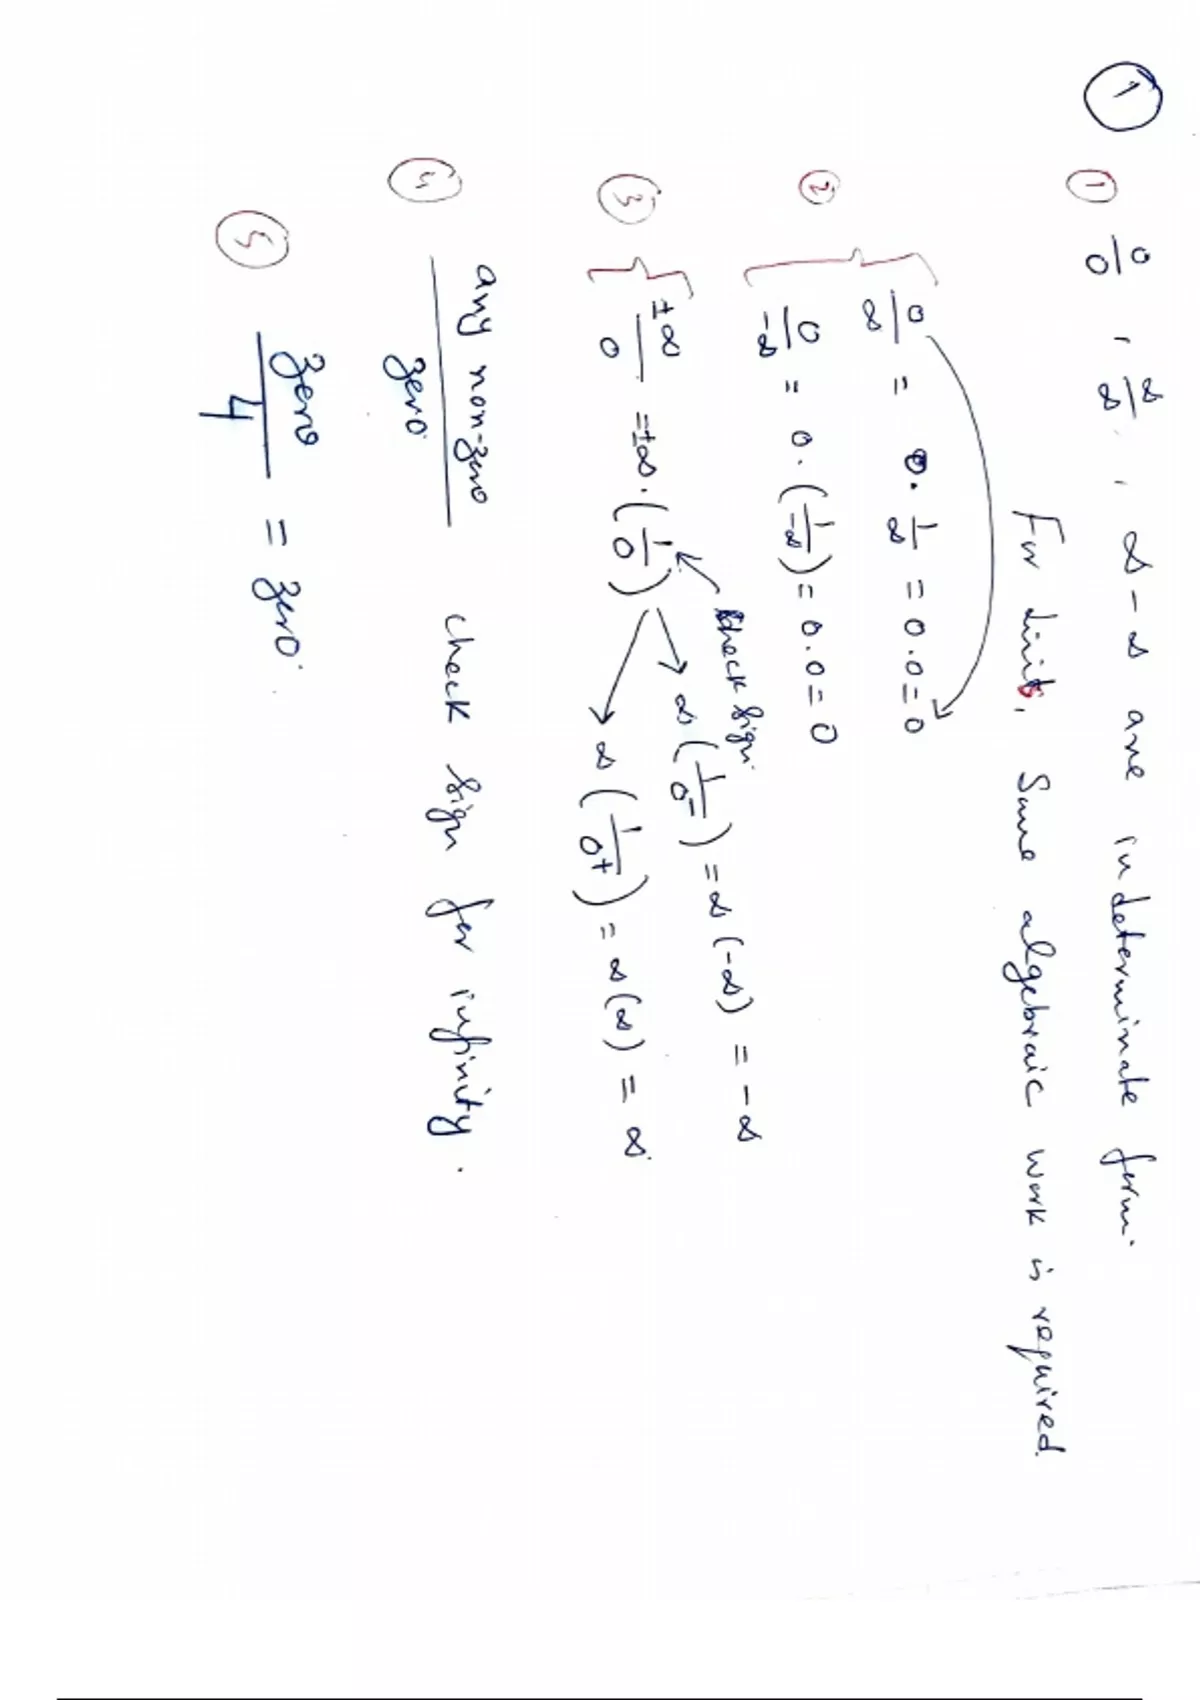 ①
① 0/0 , ∞/∞ , ∞-∞ are indeterminate form.
For limits, Some algebraic work is required.
② 0/∞ = 0 · 1/∞ = 0·0 = 0
0/-∞ = 0 · (1/-∞) = 0·0 = 0
check sign.
③ ±∞/0 = ±∞ · (1/0)
∞ (1/0⁻) = ∞ (-∞) = -∞
∞ (1/0⁺) = ∞ (∞) = ∞.
④ any non-zero/zero check sign for infinity.
⑤ zero/4 = zero.